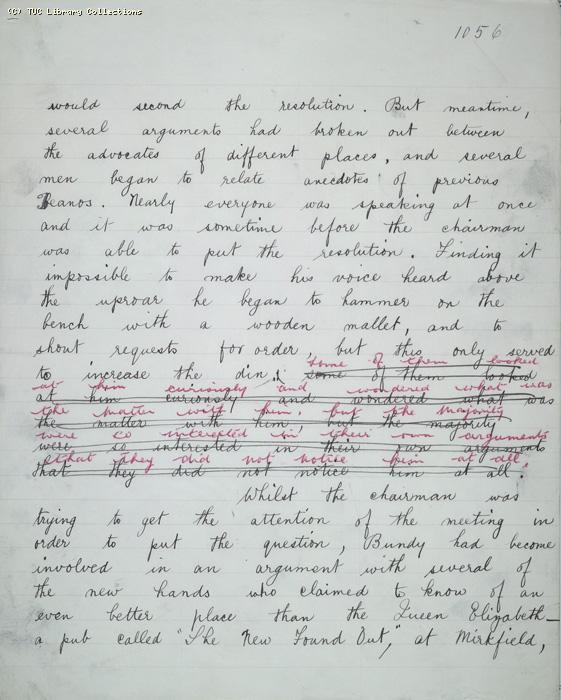 (C) TUC Library Collections
1056
would second the resolution. But meantime,
several arguments had broken out between
the advocates of different places, and several
men began to relate anecdotes of previous
Beanos. Nearly everyone was speaking at once
and it was sometime before the chairman
was able to put the resolution. Finding it
impossible to make his voice heard above
the uproar he began to hammer on the
bench with a wooden mallet, and to
shout requests for order, but this only served
some of them looked
to increase the din; some of them looked
at him curiously and wondered what was
at him curiously and wondered what was
the matter with him, but the majority
the matter with him, but the majority
were so interested in their own arguments
were so interested in their own arguments
that they did not notice him at all.
that they did not notice him at all.
Whilst the chairman was
trying to get the attention of the meeting in
order to put the question, Bundy had become
involved in an argument with several of
the new hands who claimed to know of an
even better place than the Queen Elizabeth—
a pub called "The New Found Out," at Mirkfield,